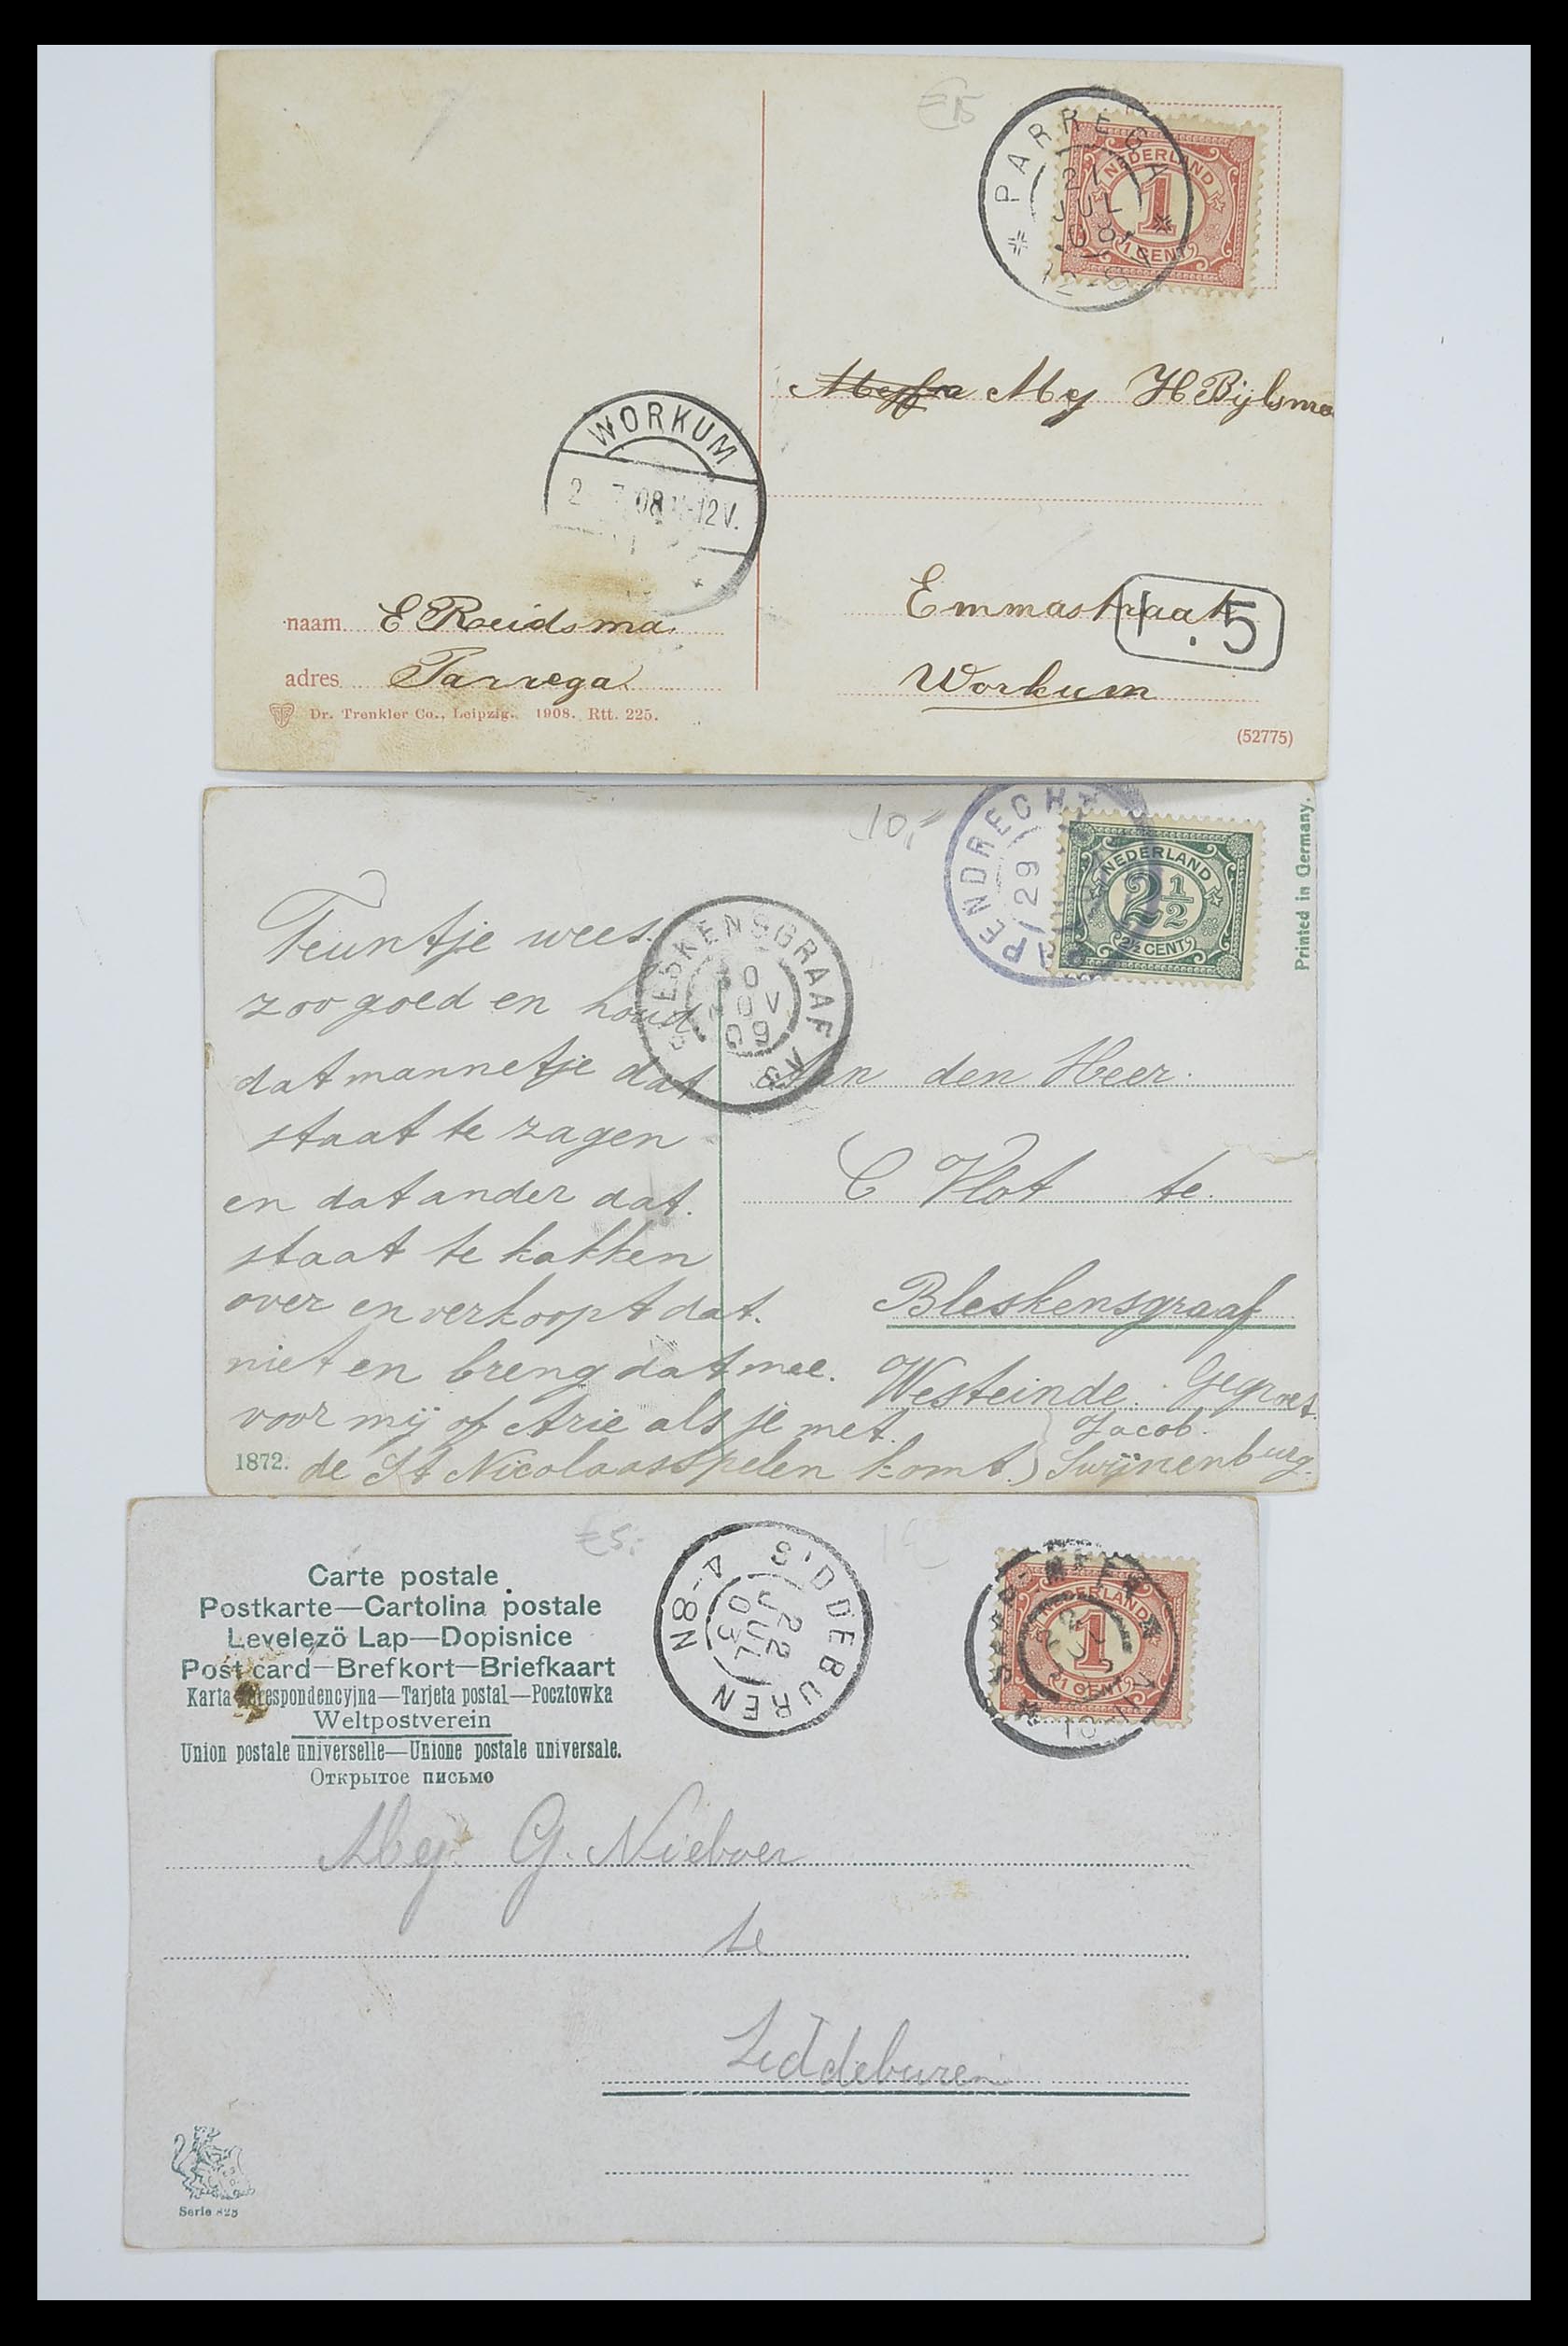 €15
PARREGA
21
JUL
08
12-8
NEDERLAND
1
1 CENT
Mej H Bijlsma
WORKUM
2 7 08 -12V.
Emmastraat
1.5
Workum
naam E Ruidsma
adres Parrega
Dr. Trenkler Co., Leipzig. 1908. Rtt. 225.
(52775)
10,"
PAPENDRECHT
29
NEDERLAND
2½
2½ CENT
Printed in Germany.
BLESKENSGRAAF
30
NOV
09
Teuntje wees
zoo goed en houd
dat mannetje dat
staat te zagen
en dat ander dat
staat te kakken
over en verkoopt dat
niet en breng dat mee.
voor mij of Arie als je met
de St Nicolaasspelen komt.)
1872.
Aan den Heer
C Vlot te
Bleskensgraaf
Westeinde. Gegroet
Jacob
Swijnenburg.
€5,-
1€
Carte postale
Postkarte—Cartolina postale
Levelezö Lap—Dopisnice
Post card—Brefkort—Briefkaart
Karta korespondencyjna—Tarjeta postal—Pocztowka
Weltpostverein
Union postale universelle—Unione postale universale.
Открытое письмо
SIDDEBUREN
22
JUL
03
4-8N
NEDERLAND
1
1 CENT
Mej G. Nieboer
te
Siddeburen
Serie 825